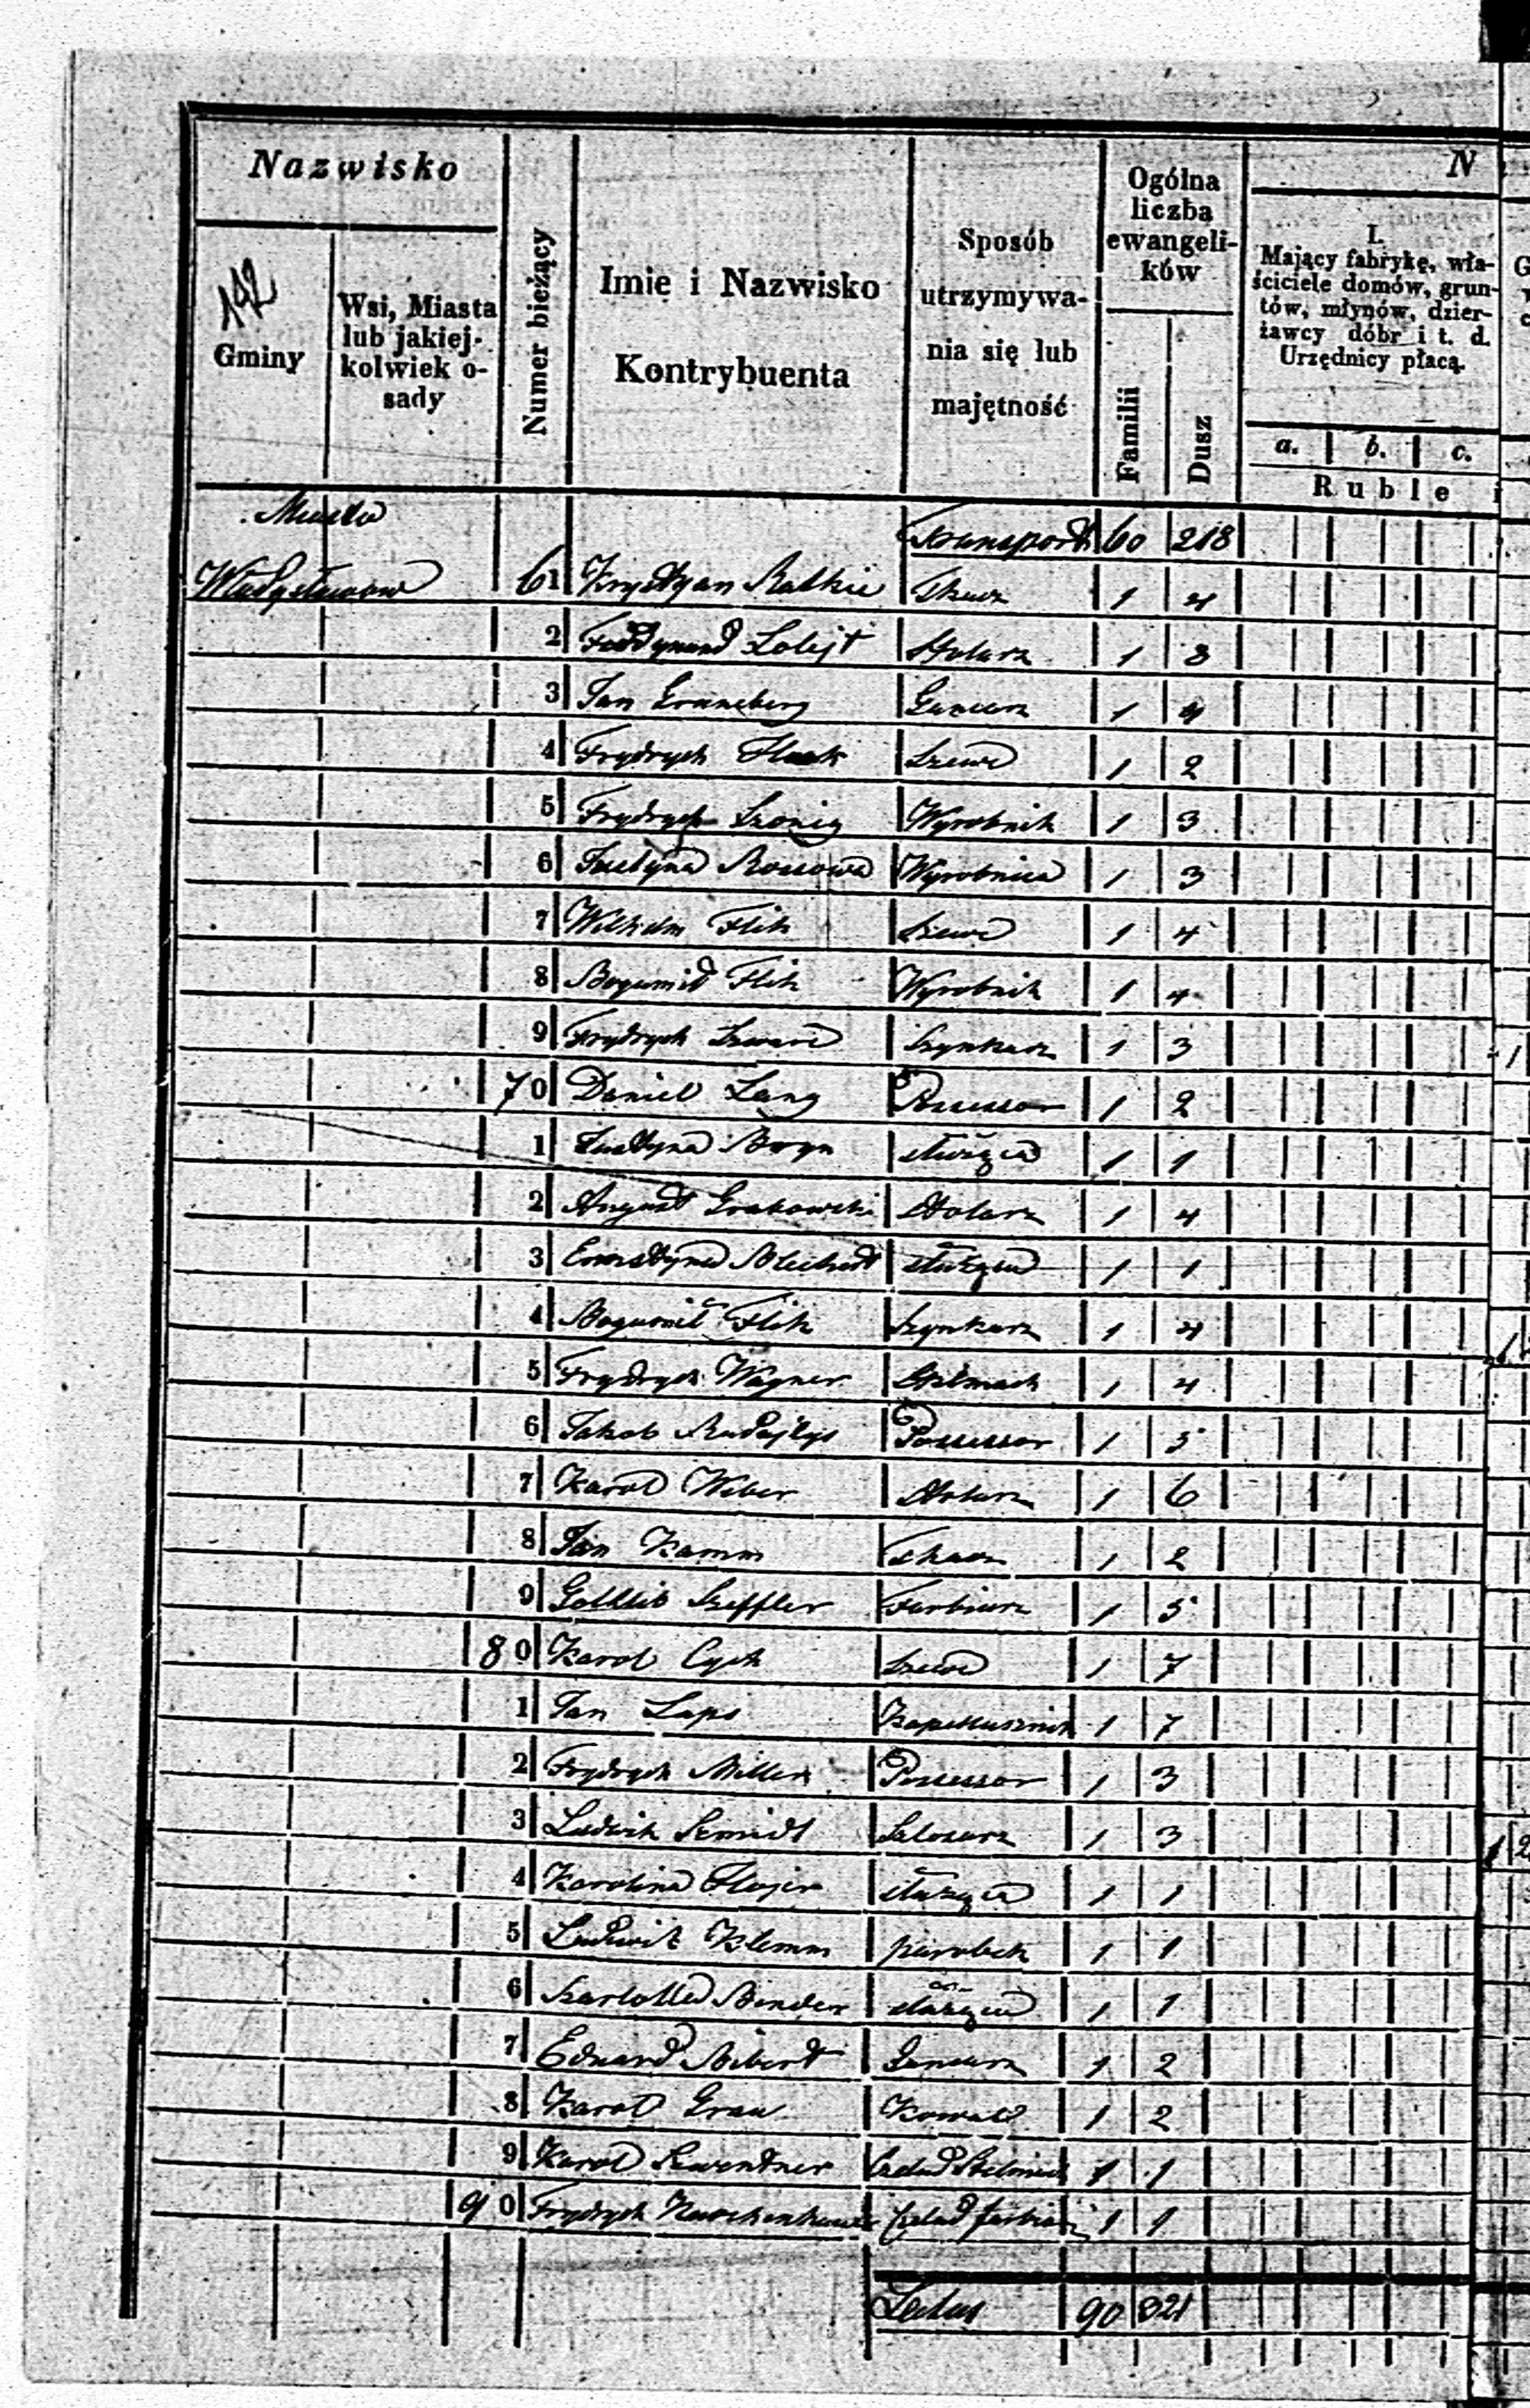 Nazwisko
N
142
Gminy
Wsi, Miasta
lub jakiej-
kolwiek o-
sady
Numer bieżący
Imie i Nazwisko
Kontrybuenta
Sposób
utrzymywa-
nia się lub
majętność
Ogólna
liczba
ewangeli-
ków
Familii
Dusz
I.
Mający fabrykę, wła-
ściciele domów, grun-
tów, młynów, dzier-
żawcy dóbr i t. d.
Urzędnicy płacą.
a. b. c.
Ruble i
Miasto
Transport 60 218
Władysławow 61 Krystyan Ratkie Tkacz 1 4
2 Ferdynand Lolejt Stolarz 1 3
3 Jan Grüneberg Garncarz 1 4
4 Frydrych Szewc 1 2
5 Frydrych Szonig Wyrobnik 1 3
6 Justyna Wyrobnica 1 3
7 Wilhelm Flik Szewc 1 4
8 Bogumił Flik Wyrobnik 1 4
9 Frydrych Szwarc Szynkarz 1 3
70 Daniel Lang Possessor 1 2
1 Justyna służąca 1 1
2 August Grabowski Stolarz 1 4
3 Ernestyna służąca 1 1
4 Bogumił Flik Szynkarz 1 4
5 Frydrych Wagner Stelmach 1 4
6 Jakob Possessor 1 5
7 Karol Weber Stolarz 1 6
8 Jan Kamm Tkacz 1 2
9 Gottlib Szeffler Farbiarz 1 5
80 Karol Cych Szewc 1 7
1 Jan Laps Kapelusznik 1 7
2 Frydrych Miller Possessor 1 3
3 Ludwik Szmidt Szlosarz 1 3
4 Karolina służąca 1 1
5 Ludwik Klemm parobek 1 1
6 Szarlotta Binder służąca 1 1
7 Eduard Garncarz 1 2
8 Karol Grau Kowal 1 2
9 Karol Szwendner Czelad 1 1
90 Frydrych Czelad 1 1
Latus 90 321